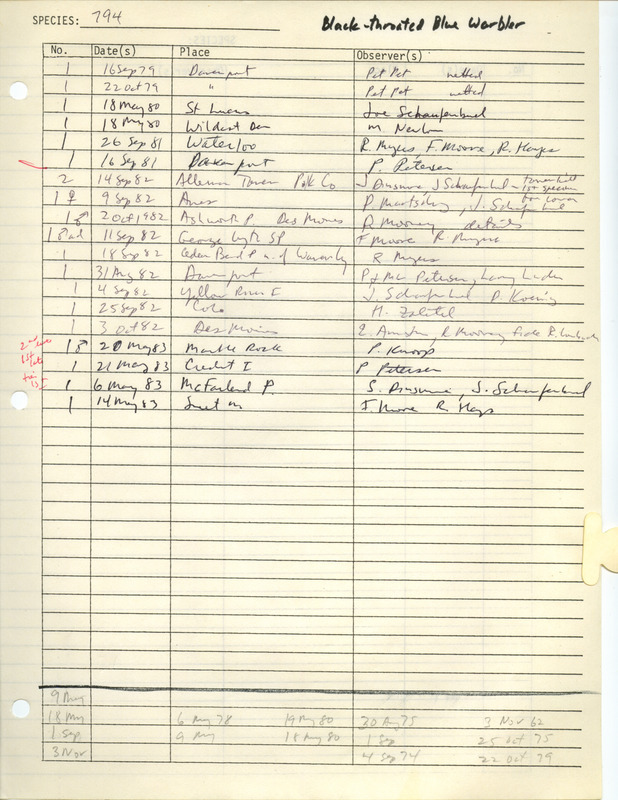 SPECIES: 794 Black-throated Blue Warbler
No. Date(s) Place Observer(s)
1 16 Sep 79 Davenport Pet Pet netted
1 22 Oct 79 " Pet Pet netted
1 18 May 80 St Lucas Joe Schaufenbuel
1 18 May 80 Wildcat Den M. Newlon
1 26 Sep 81 Waterloo R. Myers F. Moore, R. Hays
1 16 Sep 81 Davenport P. Petersen
2 14 Sep 82 Alleman Tower Polk Co J. Dinsmore J Schaufenbuel - tower kill 1st specimen for Iowa
1 ♀ 9 Sep 82 Ames P. Martsching, J. Schaufenbuel
1♂ 2 Oct 1982 Ashworth P. Des Moines R Mooney details
1♂ad 11 Sep 82 George Wyth SP F Moore R Myers
1 18 Sep 82 Cedar Bend P n. of Waverly R Myers
1 31 Aug 82 Davenport P & M Petersen, Larry Linder
1 4 Sep 82 Yellow River F J. Schaufenbuel D. Koenig
1 25 Sep 82 Colo H. Zaletel
1 3 Oct 82 Des Moines R Mooney fide
1♂ 20 May 83 Marble Rock P. Knoop
1 21 May 83 Credit I P Petersen
1 6 May 83 McFarland P. S. Dinsmore, J. Schaufenbuel
1 14 May 83 F. Moore R. Hays
9 May
18 May 6 May 78 19 May 80 30 Aug 75 3 Nov 62
1 Sep 9 May 18 May 80 1 Sep 25 Oct 75
3 Nov 4 Sep 74 22 Oct 79